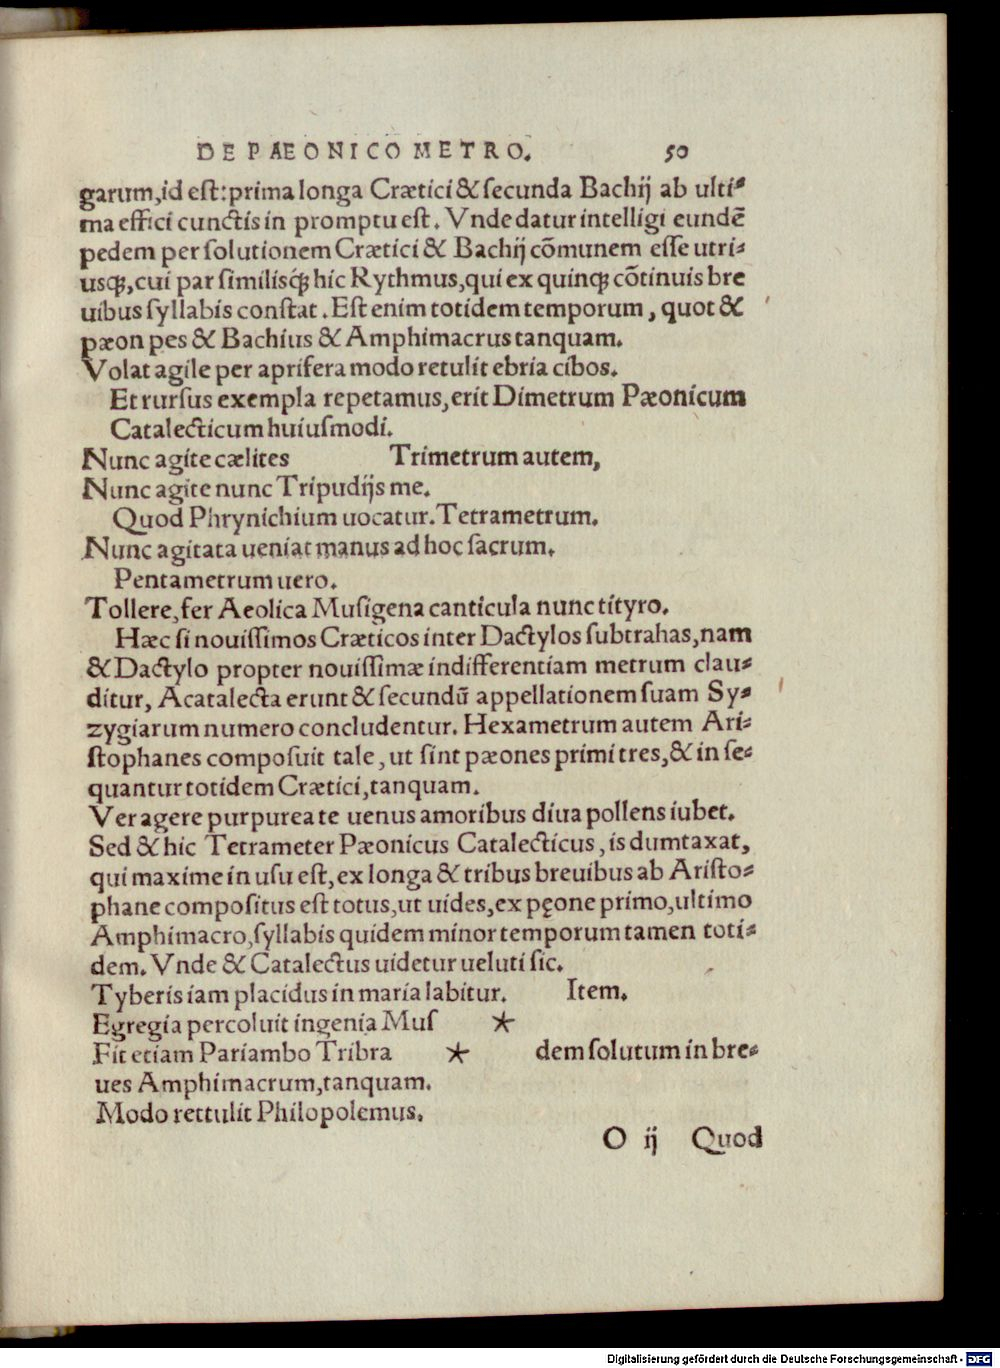 DE PAEONICO METRO. 50
garum, id est: prima longa Crætici & secunda Bachij ab ulti-
ma effici cunctis in promptu est. Vnde datur intelligi eundē
pedem per solutionem Crætici & Bachij cōmunem esse utri-
usq;, cui par similisq; hic Rythmus, qui ex quinq; cōtinuis bre
uibus syllabis constat. Est enim totidem temporum, quot &
pæon pes & Bachius & Amphimacrus tanquam.
Volat agile per aprifera modo retulit ebria cibos.
Et rursus exempla repetamus, erit Dimetrum Pæonicum
Catalecticum huiusmodi.
Nunc agite cælites Trimetrum autem,
Nunc agite nunc Tripudijs me.
Quod Phrynichium uocatur. Tetrametrum.
Nunc agitata ueniat manus ad hoc sacrum.
Pentametrum uero.
Tollere, fer Aeolica Musigena canticula nunc tityro.
Hæc si nouissimos Cræticos inter Dactylos subtrahas, nam
& Dactylo propter nouissimæ indifferentiam metrum clau-
ditur, Acatalecta erunt & secundū appellationem suam Sy-
zygiarum numero concludentur. Hexametrum autem Ari-
stophanes composuit tale, ut sint pæones primi tres, & in se-
quantur totidem Crætici, tanquam.
Ver agere purpurea te uenus amoribus diua pollens iubet.
Sed & hic Tetrameter Pæonicus Catalecticus, is dumtaxat,
qui maxime in usu est, ex longa & tribus breuibus ab Aristo-
phane compositus est totus, ut uides, ex pęone primo, ultimo
Amphimacro, syllabis quidem minor temporum tamen toti-
dem. Vnde & Catalectus uidetur ueluti sic.
Tyberis iam placidus in maria labitur. Item.
Egregia percoluit ingenia Mus *
Fit etiam Pariambo Tribra * dem solutum in bre-
ues Amphimacrum, tanquam.
Modo rettulit Philopolemus.
O ij Quod
Digitalisierung gefördert durch die Deutsche Forschungsgemeinschaft - DFG